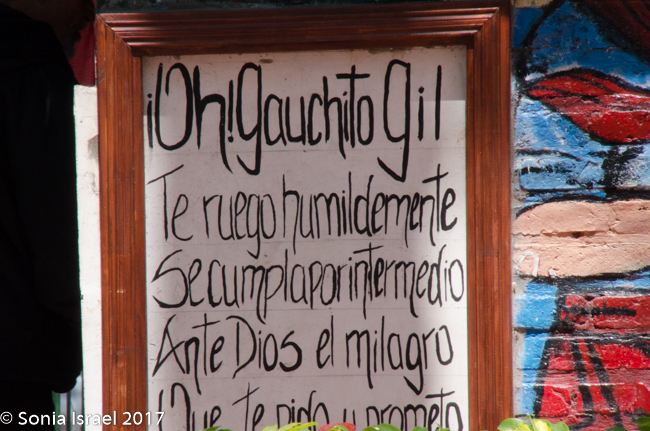 ¡Oh! Gauchito Gil
Te ruego humildemente
Se cumpla por intermedio
Ante Dios el milagro
Que te pido y prometo
© Sonia Israel 2017